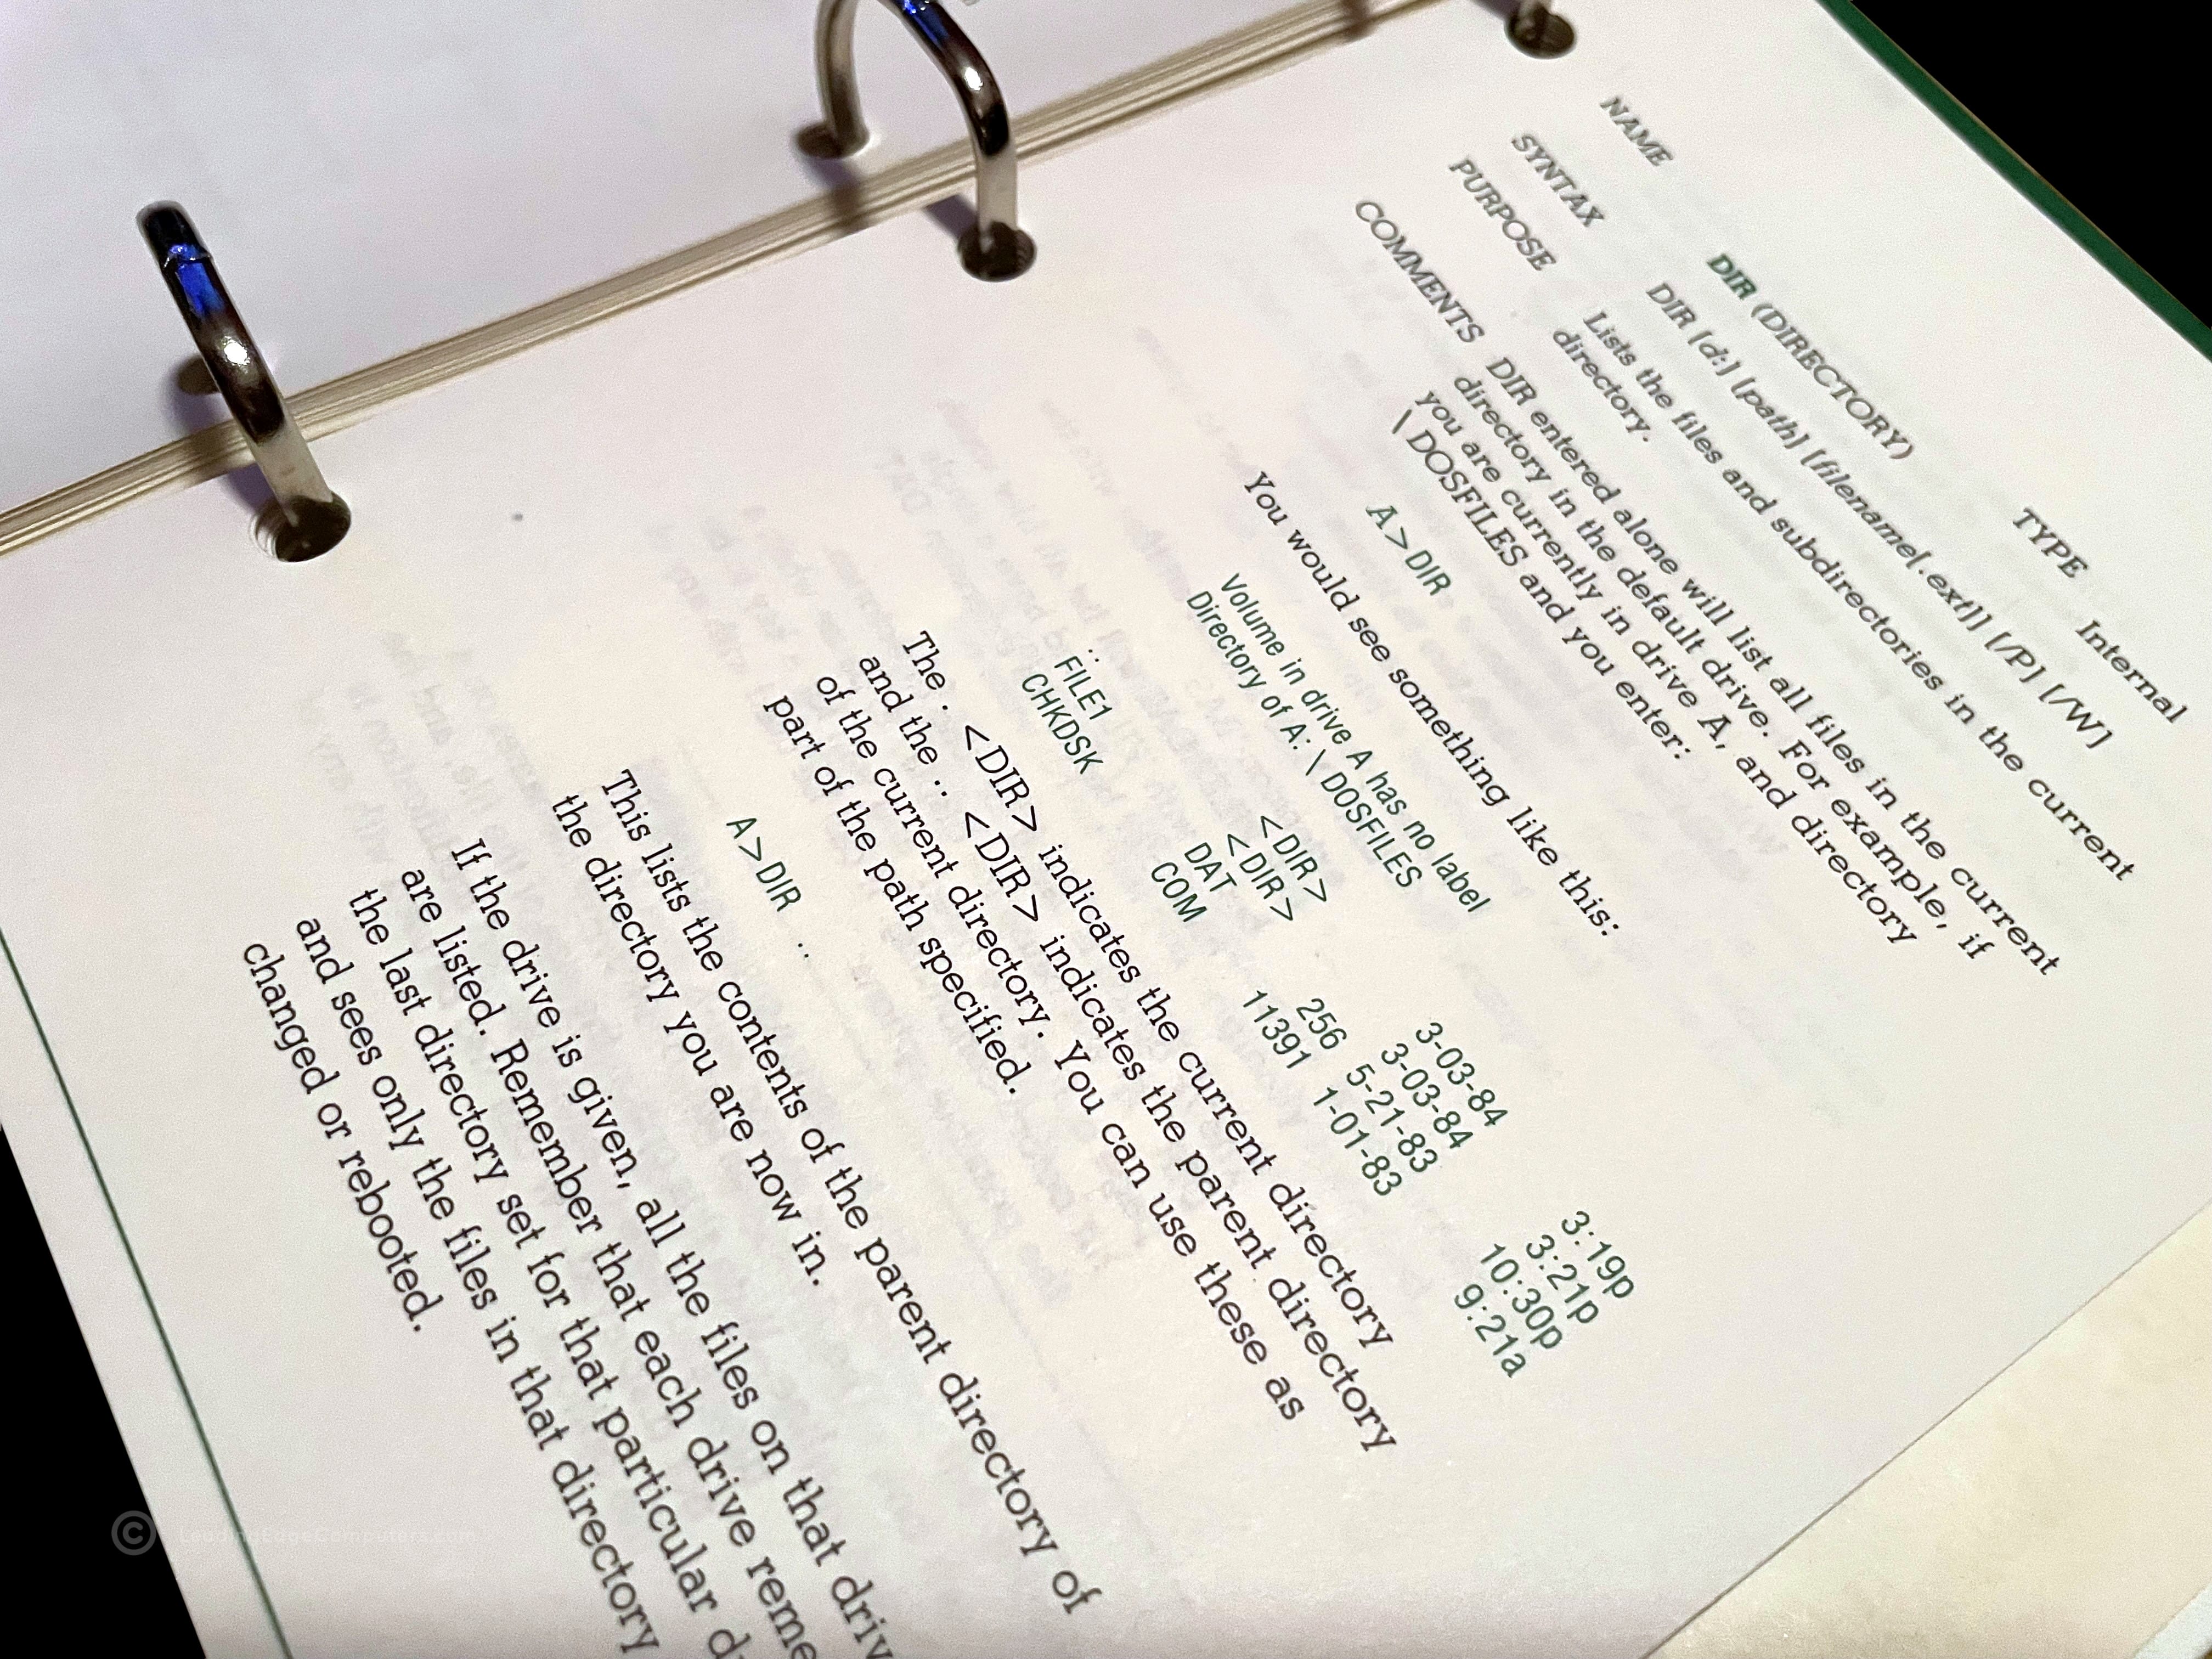 NAME DIR (DIRECTORY) TYPE Internal
SYNTAX DIR [d:] [path] [filename[.ext]] [/P] [/W]
PURPOSE Lists the files and subdirectories in the current
directory.
COMMENTS DIR entered alone will list all files in the current
directory in the default drive. For example, if
you are currently in drive A, and directory
\ DOSFILES and you enter:
A>DIR
You would see something like this:
Volume in drive A has no label
Directory of A: \ DOSFILES
. <DIR> 3-03-84 3:19p
.. <DIR> 3-03-84 3:21p
FILE1 DAT 256 5-21-83 10:30p
CHKDSK COM 11391 1-01-83 9:21a
The . <DIR> indicates the current directory
and the .. <DIR> indicates the parent directory
of the current directory. You can use these as
part of the path specified.
A>DIR ..
This lists the contents of the parent directory of
the directory you are now in.
If the drive is given, all the files on that driv
are listed. Remember that each drive reme
the last directory set for that particular d
and sees only the files in that directory
changed or rebooted.